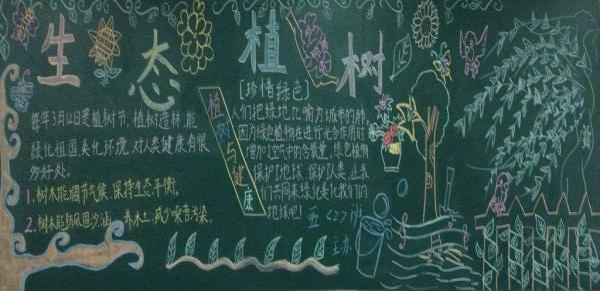 生态植树
每年3月12日是植树节,植树造林,能
绿化祖国美化环境,对人类健康有很
多好处。
1.树木能调节气候,保持生态平衡。
2.树木能防风固沙,养水土,减少噪音污染。
植树与健康
[珍惜绿色]
人们把绿地比喻为城市的肺,
因为绿色植物在进行光合作用时
增加了空气中的含氧量,绿色植物
保护了地球,保护了人类,让我
们共同来绿化美化我们的
地球吧!
627班
主办